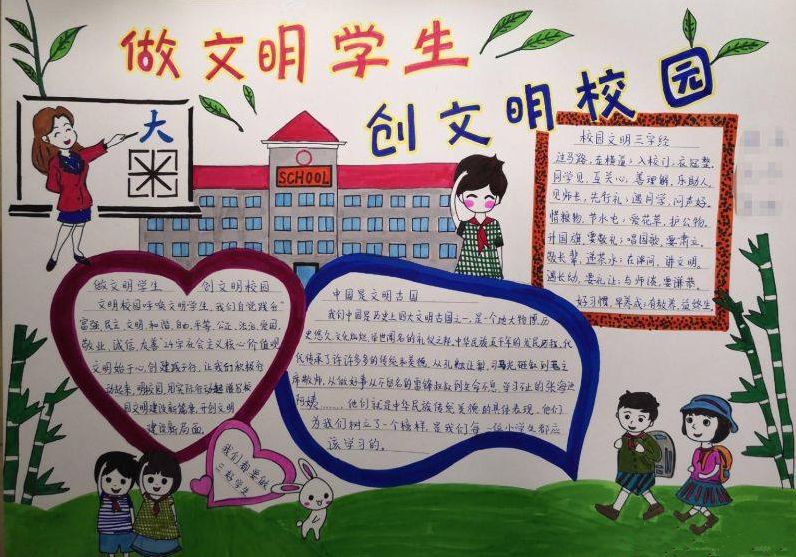 做文明学生
创文明校园
大
SCHOOL
校园文明三字经
过马路，左横道；入校门，衣冠整。
同学见，互关心，善理解，乐助人。
见师长，先行礼；遇同学，问声好。
惜粮物，节水电；爱花草，护公物。
升国旗，要敬礼；唱国歌，要肃立。
敬长辈，递茶水；在课间，讲文明。
遇长幼，要礼让；与师谈，要谦恭。
好习惯，早养成；有教养，益终生。
做文明学生 创文明校园
文明校园呼唤文明学生，我们自觉践行"
富强，民主，文明，和谐，自由，平等，公正，法治，爱国，
敬业，诚信，友善"24字社会主义核心价值观
文明始于心，创建践于行，让我们积极行
动起来，明校园，用实际行动
园文明建设新篇章，开创文明
建设新局面。
中国是文明古国
我们中国是历史上四大文明古国之一，是一个地大物博，历
史悠久，文化灿烂，举世闻名的礼仪之邦。中华民族五千年的发展历程，代
代传承了许许多多的传统美德。从孔融让梨，司马光砸缸到毛主
席敬师，从做好事从不留名的雷锋叔叔到生命不息，学习不止的张海迪
阿姨……，他们就是中华民族传统美德的具体表现，他们
为我们树立了一个榜样，是我们每一位小学生都应
该学习的。
我们都要做
三好学生